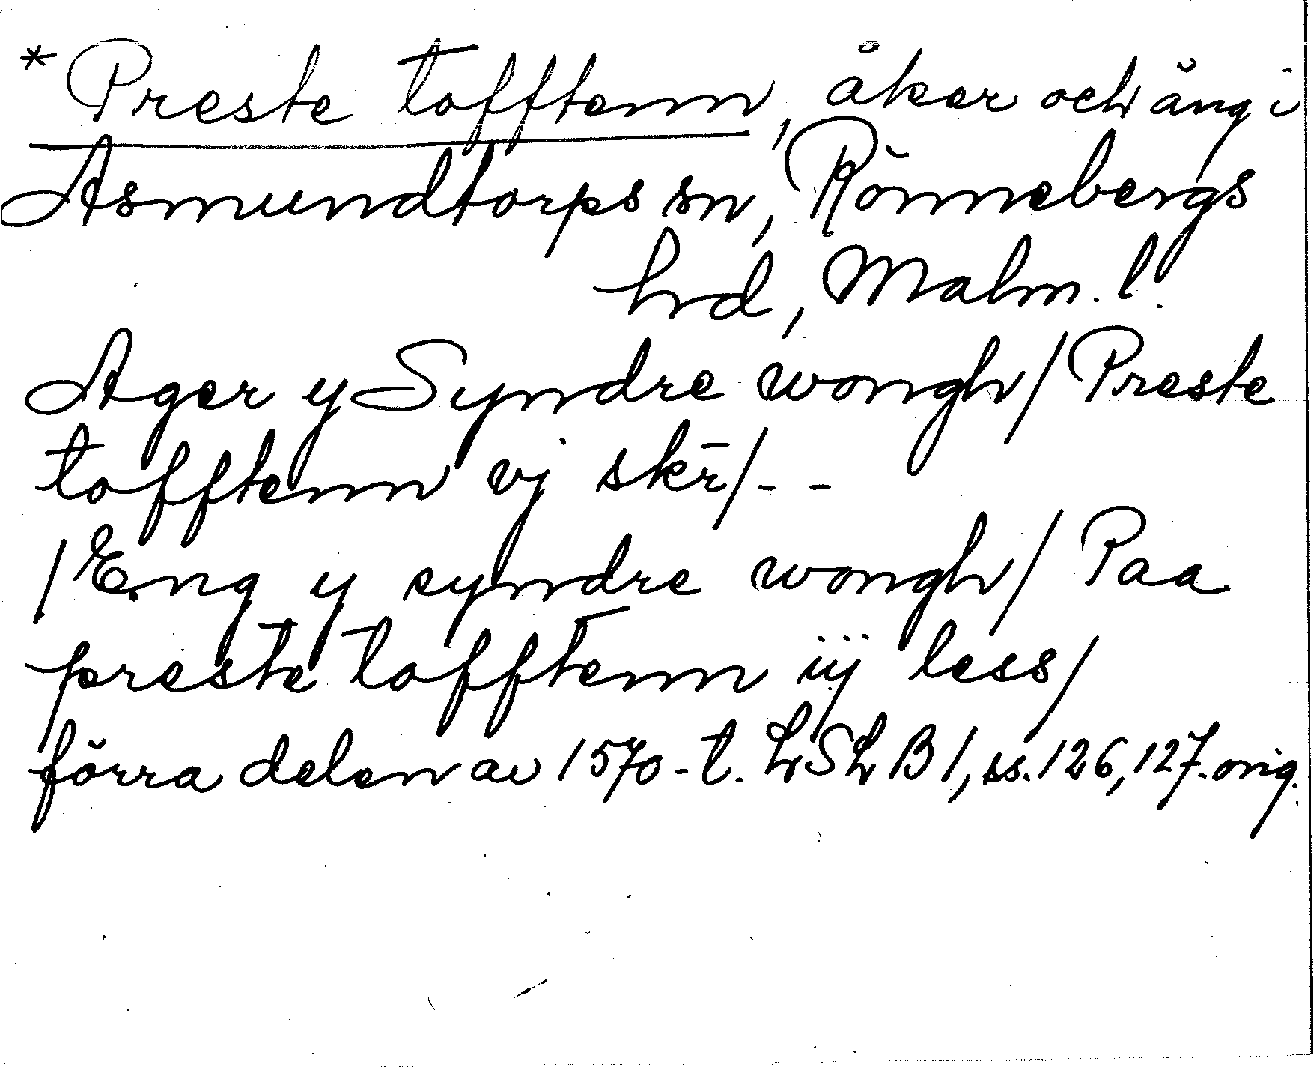 *Preste tofftenn, åker och äng i
Asmundtorps sn, Rönnebergs
hd, Malm. l.
Ager y Syndre wongh/Preste
tofftenn vj skr̄/--
/Eng y syndre wongh/ Paa
preste tofftenn iij less/
förra delen av 1570-t. LSLB 1, ss. 126, 127. orig.